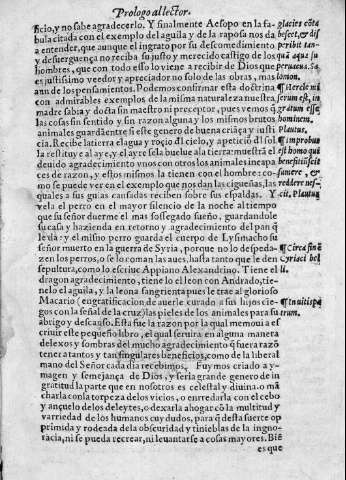 Prologo al lector.
ficio, y no sabe agradecerlo. Y finalmente Aesopo en la fa-
bula citada con el exemplo del aguila y de la raposa nos da
a entender, que aunque el ingrato por su descomedimiento
y desuerguença no reciba su justo y merecido castigo de los
hombres, que con todo esso lo viene a recibir de Dios que
es justissimo veedor y apreciador no solo de las obras, mas
aun de los pensamientos. Podemos confirmar esta doctrina
con admirables exemplos de la misma naturaleza nuestra
madre sabia y docta sin maestro ni preceptor, pues vemos q̃
las cosas sin sentido y sin razon alguna y los mismos brutos
animales guardã entre si este genero de buena criãça y justi
cia. Recibe la tierra el agua y roçio dl cielo, y apetició dl sol
la restituye al aye, y el ayre se la buelue ala tierra: muestrã el
deuido agradecimiento vnos con otros los animales incapa
ces de razon, y estos mismos la tienen con el hombre: co-
mo se puede ver en el exemplo que nos dan las cigueñas, las
quales a sus guias cansadas reciben sobre sus espaldas. Y
vela el perro en el mayor silencio de la noche al tiempo
que su señor duerme el mas sossegado sueño, guardandole
su casa y hazienda en retorno y agradecimiento del pan q̃
le vã: y el mismo perro guarda el cuerpo de Lysimacho su
señor muerto en la guerra de Syria, porque no lo despeda-
zen los perros, o se lo coman las aues, hasta tanto que le den
sepultura, como lo escriue Appiano Alexandrino. Tiene el
dragon agradecimiento, tiene lo el leon con Andradio, tie-
nelo el aguila, y la leona sangrienta pues le trae al glorioso
Macario (en gratificacion de auerle curado a sus hijos cie-
gos con la señal de la cruz) las pieles de los animales para su
abrigo y descanso. Esta fue la razon por la qual me mouia ef
criuir este pequeño libro, el qual seruira en alguna manera
de lexos y sombras del mucho agradecimiento q̃ fuera razõ
tener a tantos y tan singulares beneficios, como de la liberal
mano del Señor cada dia recebimos. Fuymos criado a y-
magen y semejança de Dios, y seria grande genero de in-
gratitud la parte que en nosotros es celestial y diuina. o mã
charla con la torpeza delos vicios, o enrredarla con el cebo
y ançuelo de los deleytes, o dexarla ahogar cõ la multitud y
varriedad de los humanos cuydados, para q̃ desta suerte op
primida y rodeada de la obscuridad y tinieblas de la igno-
racia, ni se pueda recrear, ni leuantarse a cosas mayores. Biẽ
es que
glacies cõta
bescet, & dis
peribit tan-
quã aqua su
peruacua. Sa
lomon.
Stercle mi
serum est, in
gratum esse
hominem,
Plautus,
Improbus
est homo qui
beneficiũ scit
sumere, &
reddere nes-
cit, Plautus
Circa finẽ
Cyriaci bel
li.
In uitis pa
trum.